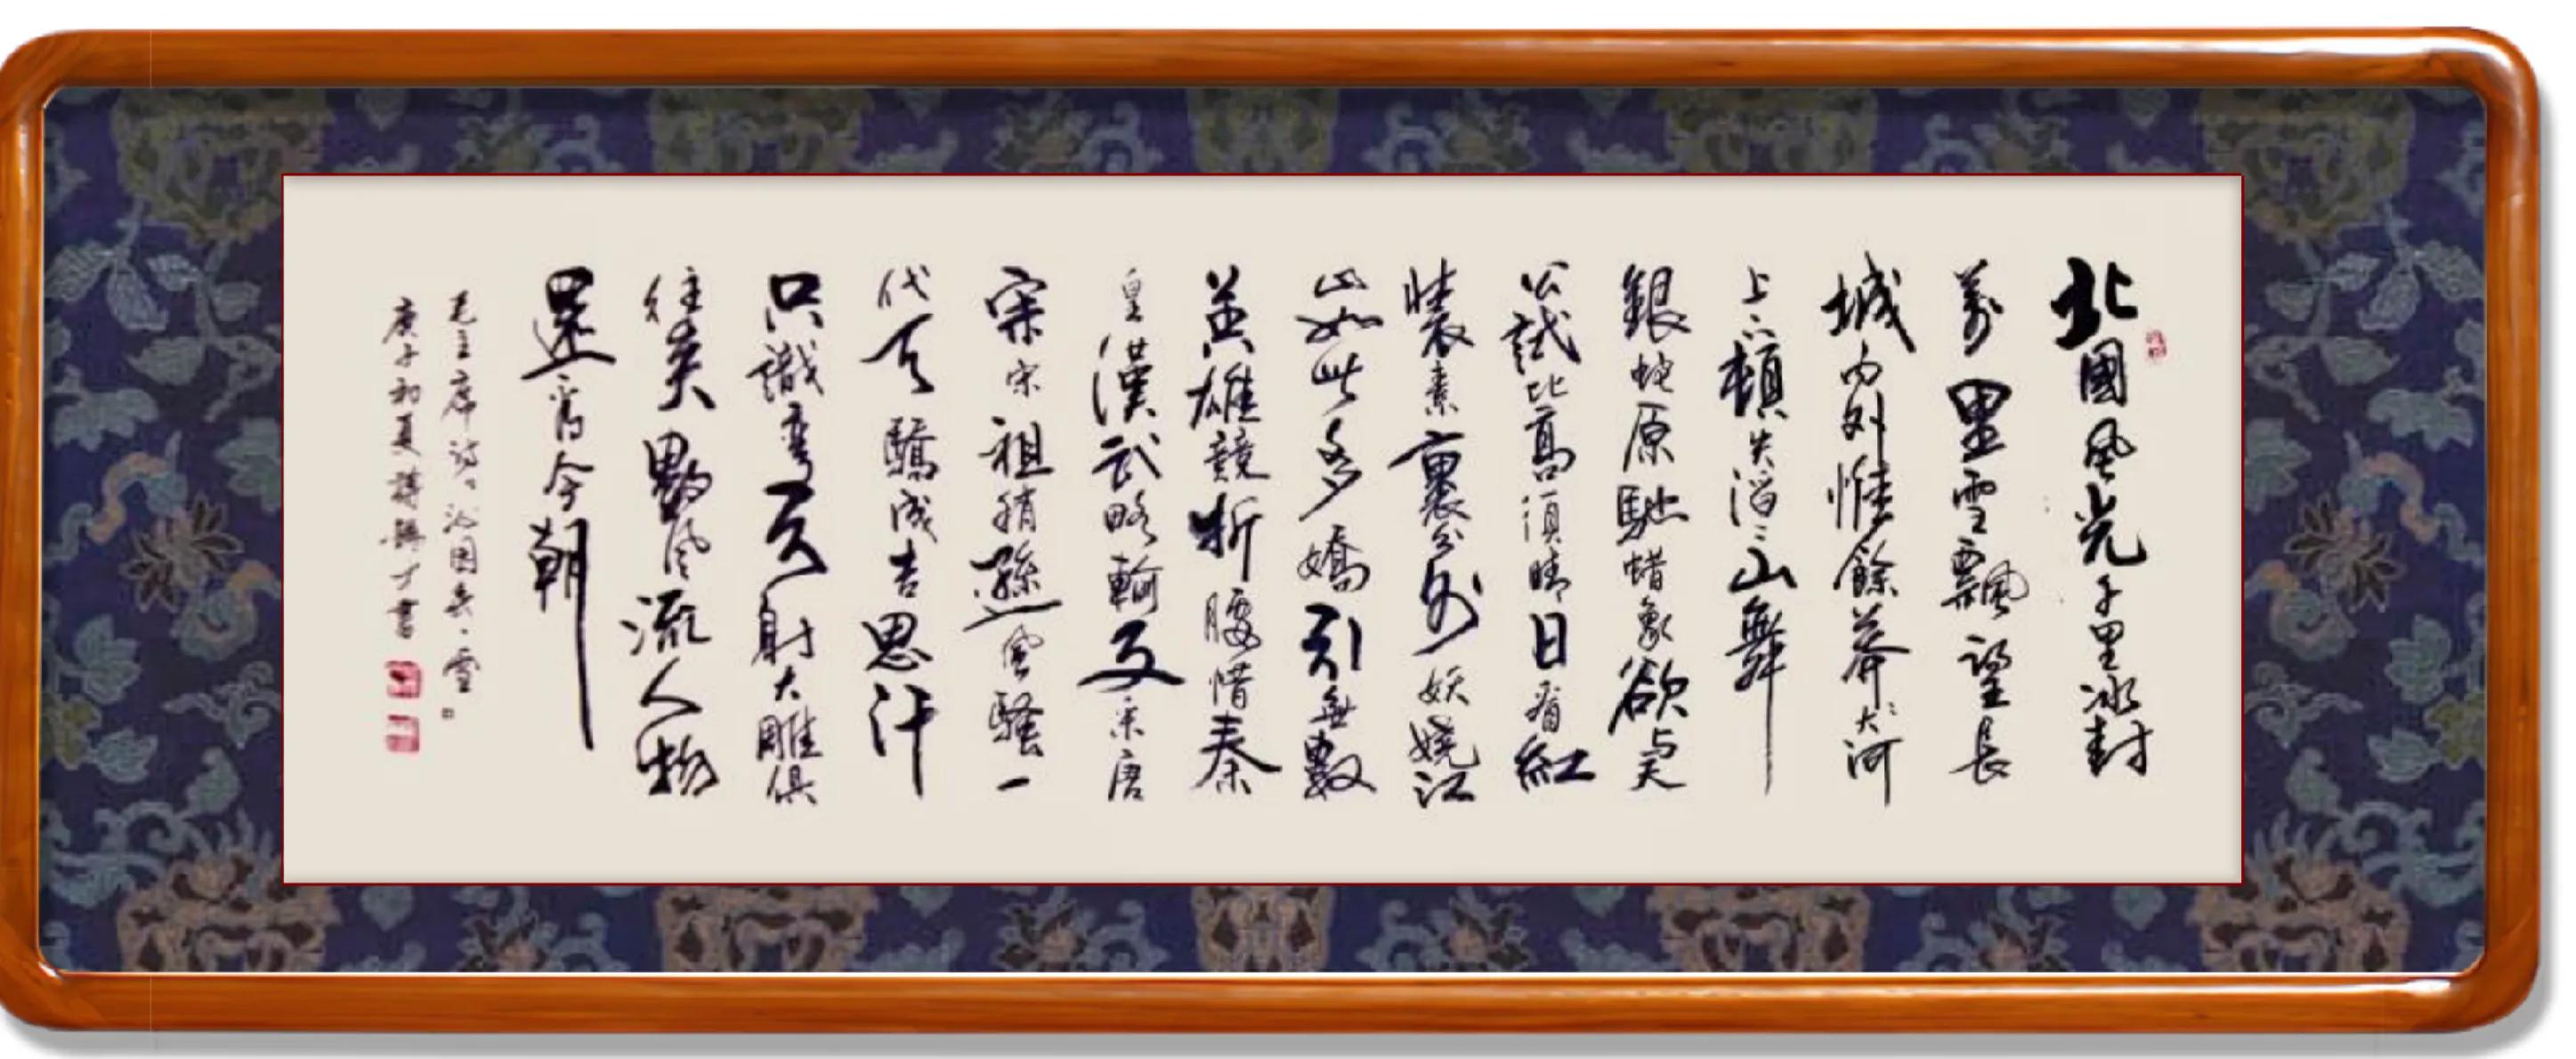 北國風光千里冰封
萬里雪飄望長
城内外惟餘莽々大河
上下頓失滔々山舞
銀蛇原馳蜡象欲与天
公試比高須晴日看紅
裝素裹分外妖嬈江
山如此多嬌引無數
英雄競折腰惜秦
皇漢武略輸文采唐
宗宋祖稍遜風騷一
代天驕成吉思汗
只識彎弓射大雕俱
往矣數風流人物
還看今朝
毛主席詩詞沁園春·雪
庚子初夏 書